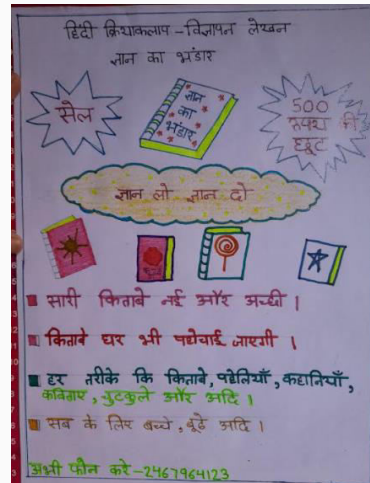 हिंदी क्रियाकलाप - विज्ञापन लेखन
ज्ञान का भंडार
सेल
ज्ञान
का
भंडार
500
रुपय की
छूट
ज्ञान लो ज्ञान दो
सारी किताबे नई और अच्छी ।
किताबे घर भी पहोचाई जाएगी ।
हर तरीके कि किताबे, पहेलियाँ, कहानियाँ,
कविताए, चुटकुले और आदि ।
सब के लिए बच्चे, बूढे आदि ।
अभी फोन करे - 2467964123